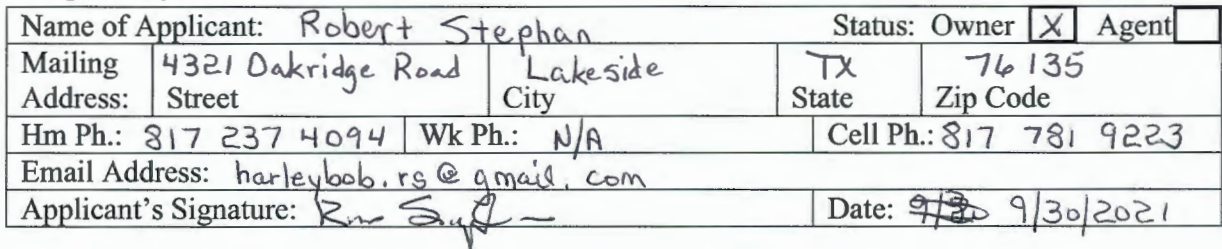 Name of Applicant: Robert Stephan Status: Owner X Agent
Mailing 4321 Oakridge Road Lakeside TX 76135
Address: Street City State Zip Code
Hm Ph.: 817 237 4094 Wk Ph.: N/A Cell Ph.: 817 781 9223
Email Address: harleybob.rs@gmail.com
Applicant's Signature: Date: 9/30/2021